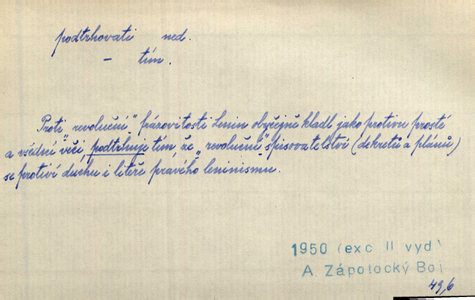 podtrhovati ned.
- tím.
Proti „revoluční" frázovitosti Lenin obyčejně kladl jako protivu prosté
a všední věci, podtrhuje tím, že „revoluční" spisovatelství (dekretů a plánů)
se protiví duchu i liteře pravého leninismu.
1950 (exc II vyd)
A. Zápotocký Boj
49,6